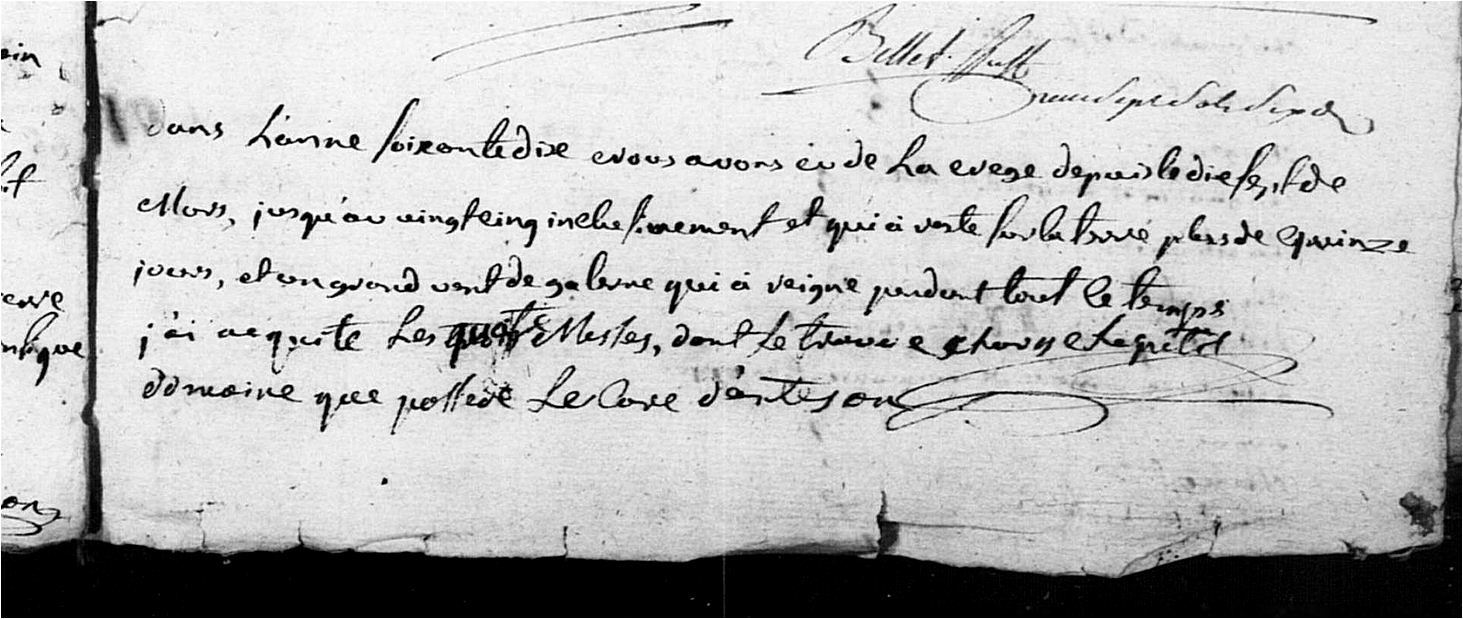 ein
Bellet
dans L'anne soixante dixe nous avons eu de La nege depuis le diesept de
Mars, jusqu'au vingt cinq inclusivement et qui à reste sur la terre plus de quinze
jours, et un grand vent de galerne qui à reigne pendant tout le temps
j'ai acquite Les Messes, dont se trouve charge Le petit
domaine que possede Le Cure d'anteson